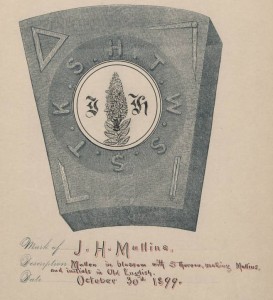 H T W S S T K S
J H
Mark of J. H. Mullins.
Description Mullen in blossom with making Mullins,
and initials in Old English.
Date October 30th 1899.